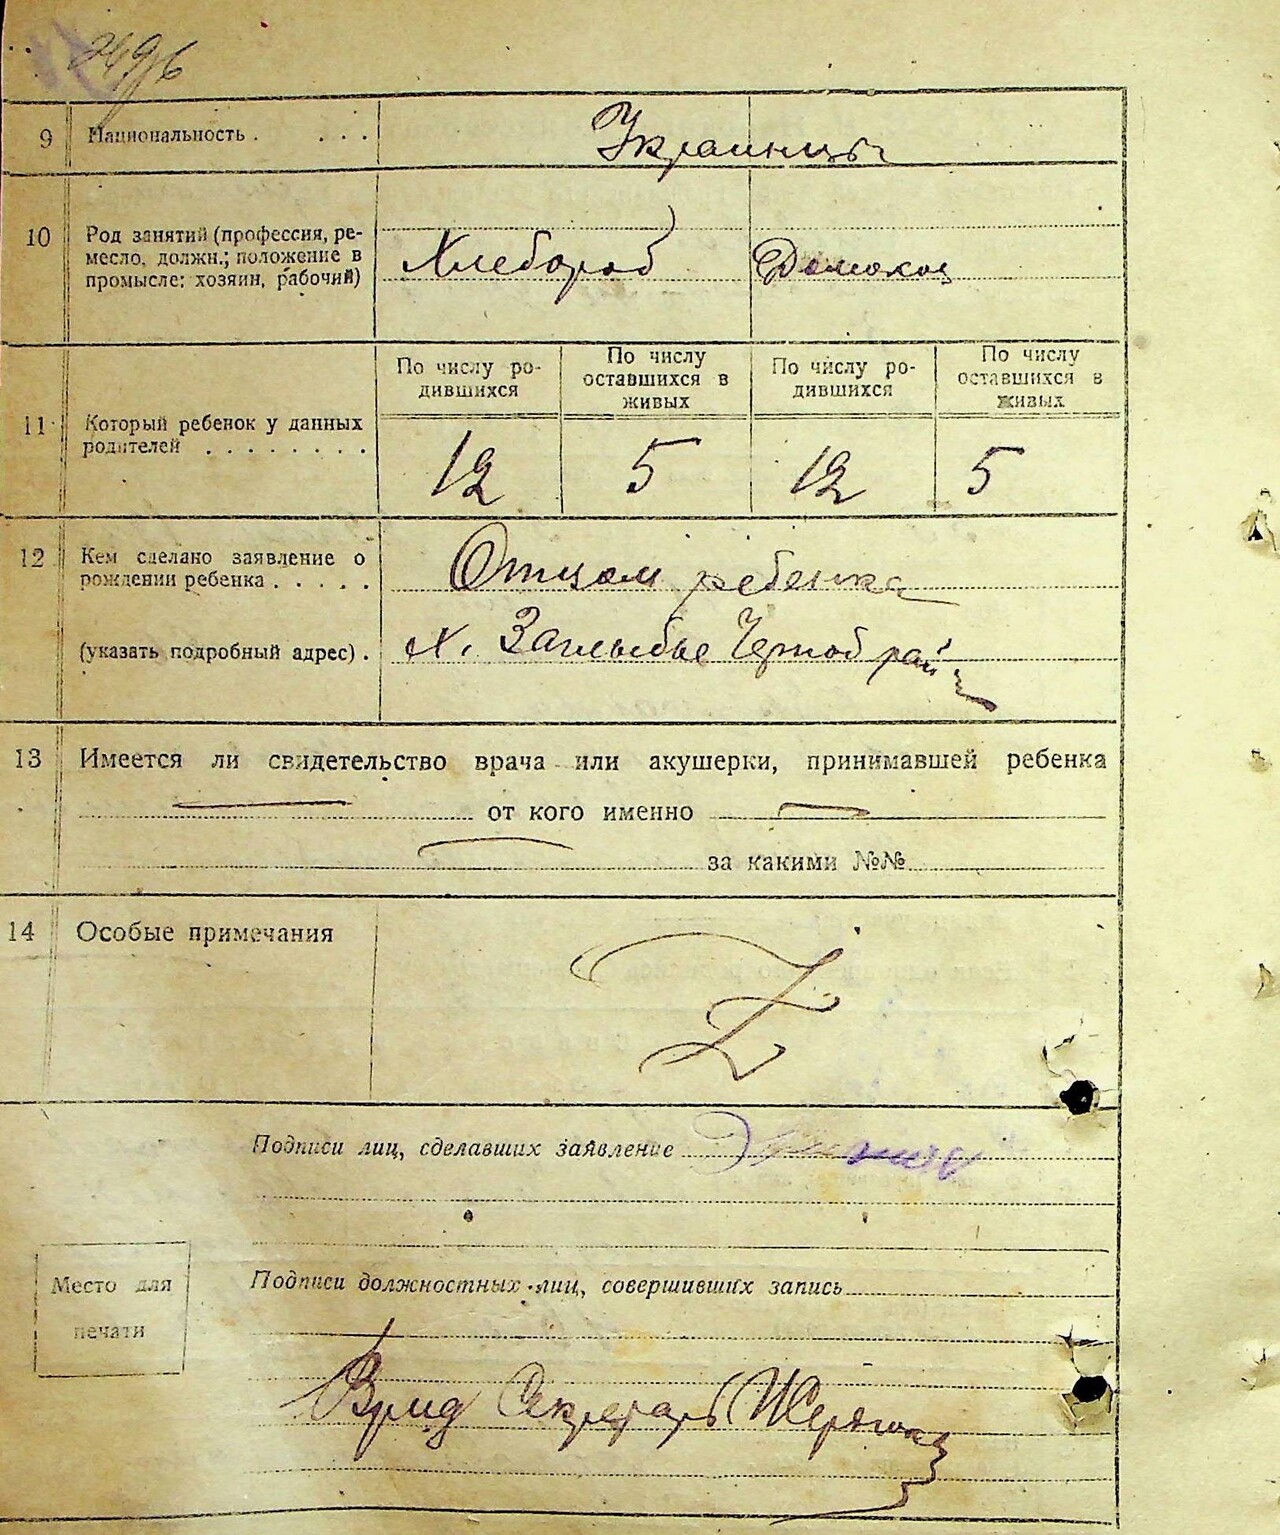 2496
9 Национальность . . . . Украинцы
10 Род занятий (профессия, ре-
месло, должн.; положение в
промысле: хозяин, рабочий)
Хлебороб Домохоз
По числу ро-
дившихся
По числу
оставшихся в
живых
По числу ро-
дившихся
По числу
оставшихся в
живых
11 Который ребенок у данных
родителей . . . . . . . .
12 5 12 5
12 Кем сделано заявление о
рождении ребенка . . . . .
Отцом ребенка
(указать подробный адрес) .
х. Заглыбье Черноб рай
13 Имеется ли свидетельство врача или акушерки, принимавшей ребенка
от кого именно
за какими №№
14 Особые примечания
Подписи лиц, сделавших заявление
Подписи должностных лиц, совершивших запись
Место для
печати
Врид Секретарь